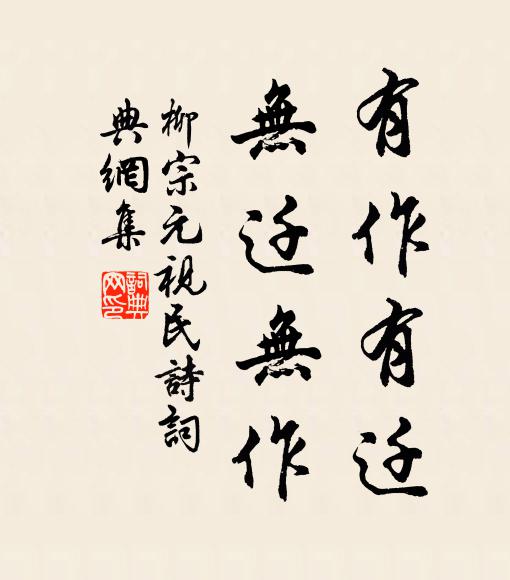 有作有迁
無迁無作
柳宗元視民詩詞
典網集
詞典网印